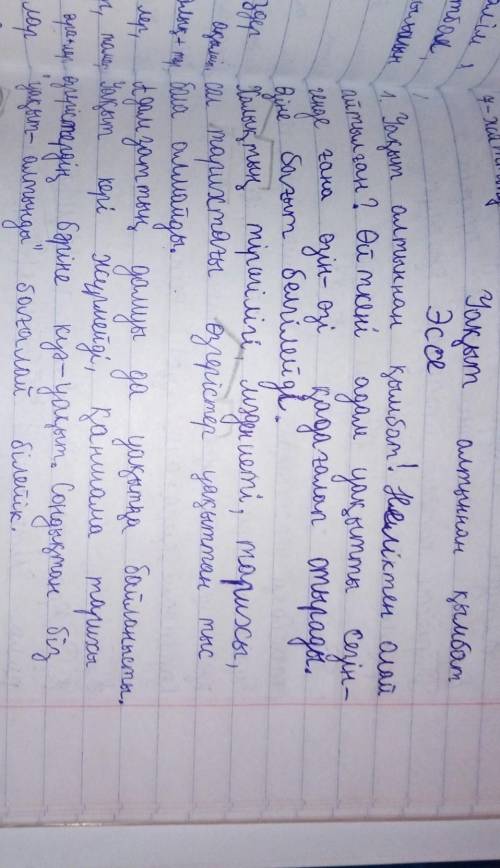 Уақыт алтыннан қымбат
Эссе
1. Уақыт алтыннан қымбат! Неліктен олай
айтылған? Өйткені адам уақытты сезін-
генде ғана өзін-өзі қадағалап отырады.
Өзіне бағыт белгілейді.
Халықтың тіршілігі, мәдениеті, тарихы,
ол тарихтағы өзгерістер уақыттан тыс
бола алмайды.
Адамзаттың дамуы да уақытқа байланысты.
Уақыт кері жүрмейді, қаншама тарихи
өзгерістердің бәріне куә-уақыт. Сондықтан біз
"уақыт-алтынды" бағалай білейік.